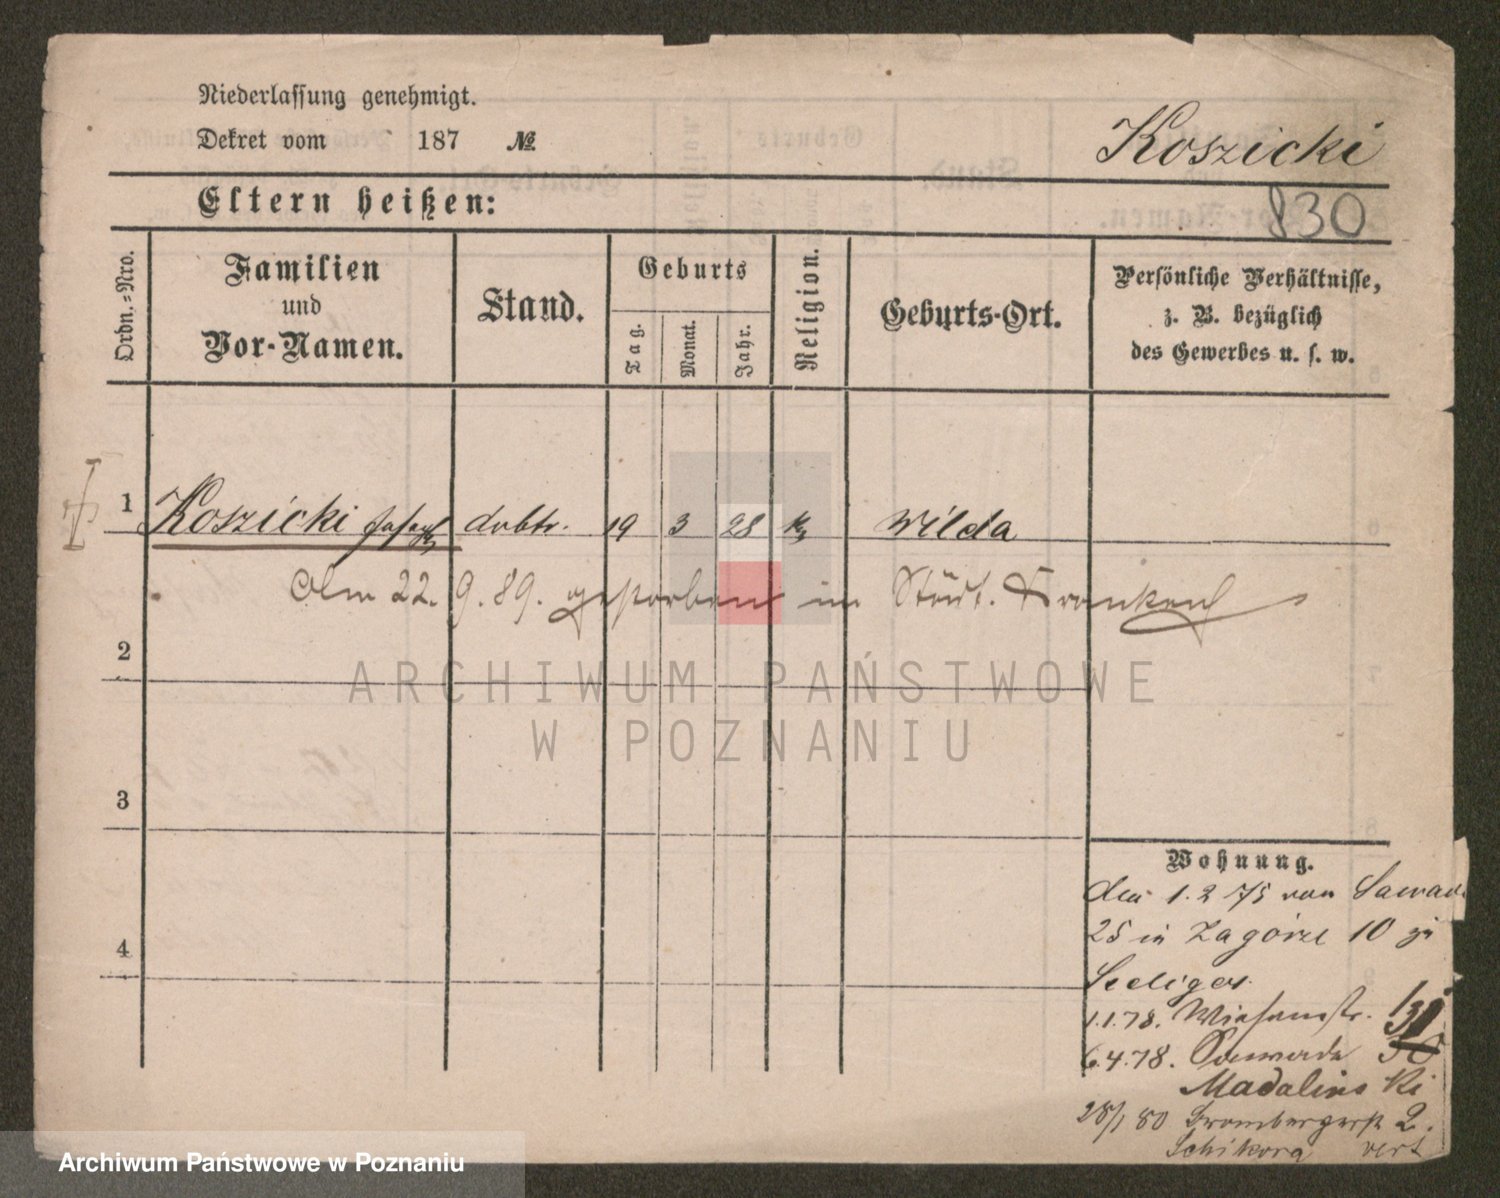 Niederlassung genehmigt.
Dekret vom 187 №
Koszicki
830
Eltern heißen:
Ordn.=Nro.
Familien
und
Vor-Namen.
Stand.
Geburts
Tag.
Monat.
Jahr.
Religion.
Geburts-Ort.
Persönliche Verhältnisse,
z. B. bezüglich
des Gewerbes u. s. w.
1 Koszicki Joseph 19 3 28 k Wilda
Am 22. 9. 89. gestorben im Städt. Krankenh
2
3
4
Wohnung.
den 1. 2 75 von
25 in Zagórze 10
Seeliger
1.1.78. Wiesenstr.
6.4.78.
Madalinski
28/1 80 Brombergerstr 2.
Schikora
ARCHIWUM PAŃSTWOWE
W POZNANIU
Archiwum Państwowe w Poznaniu